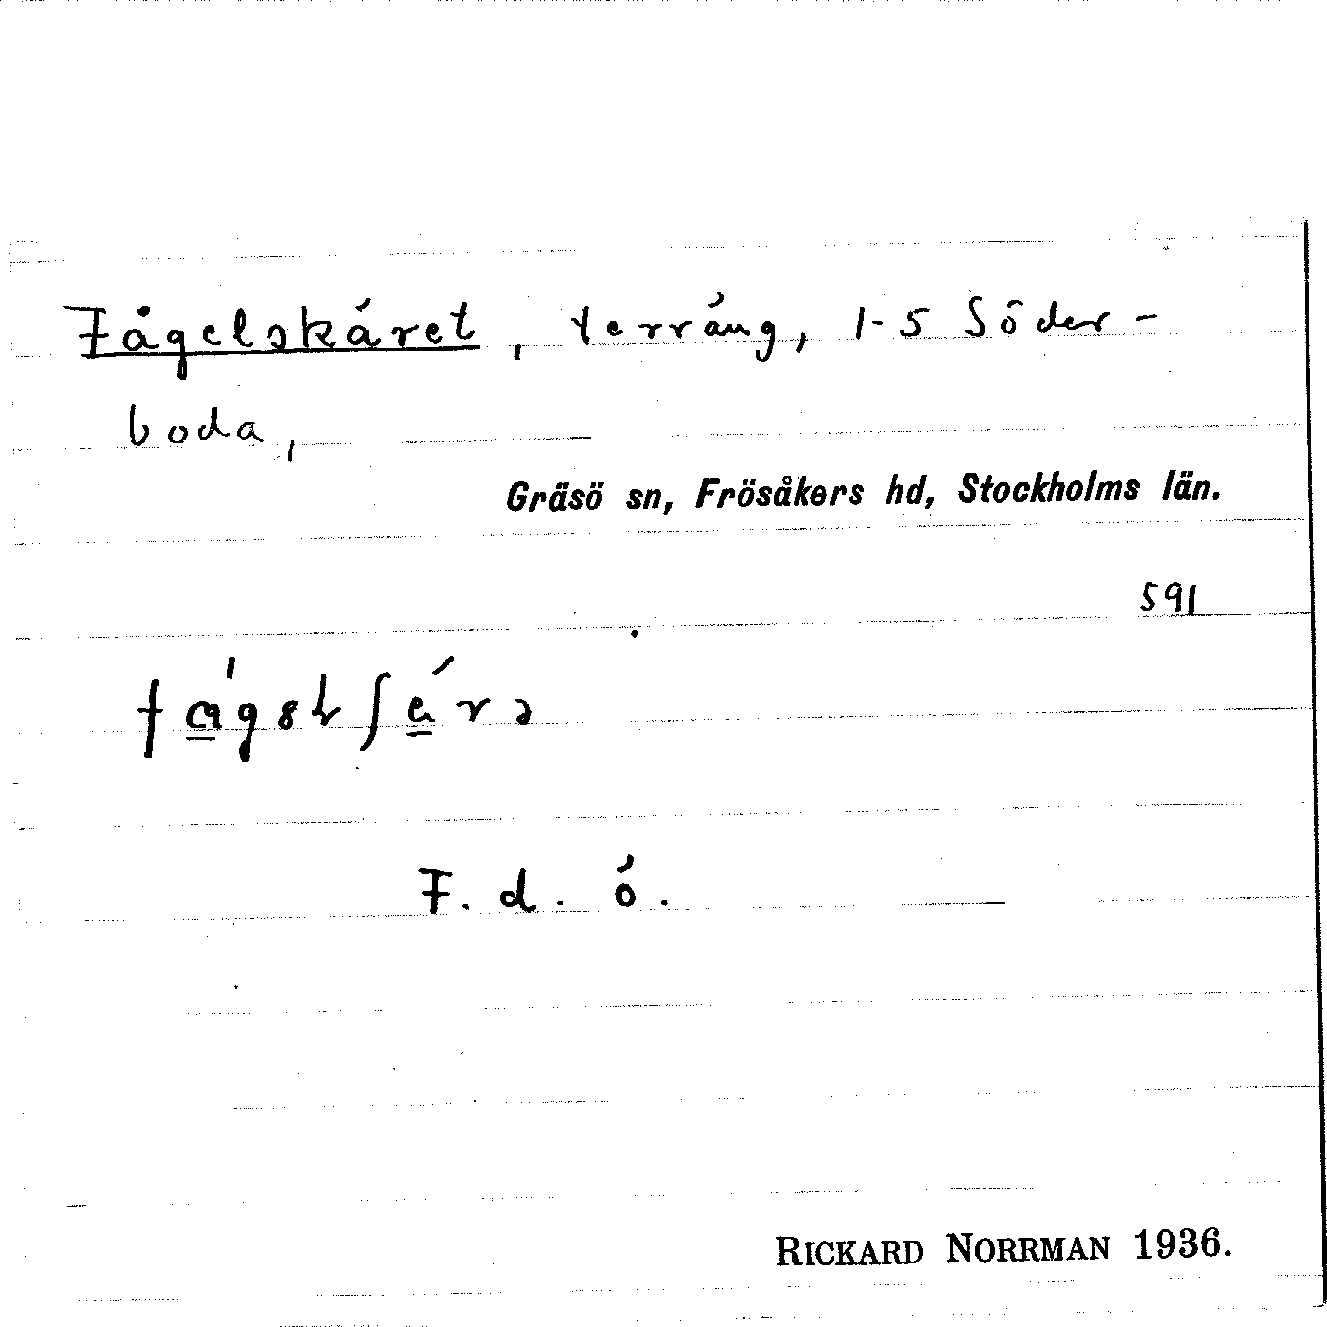 Fågelskäret, terräng, 1-5 Söder-
boda,
Gräsö sn, Frösåkers hd, Stockholms län.
591
F. d. ö.
RICKARD NORRMAN 1936.